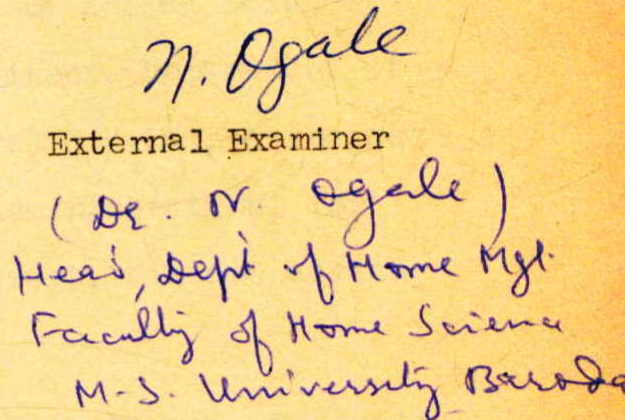 N. Ogale
External Examiner
(Dr. N. Ogale)
Head, Dept of Home Mgt.
Faculty of Home Science
M.S. University Baroda